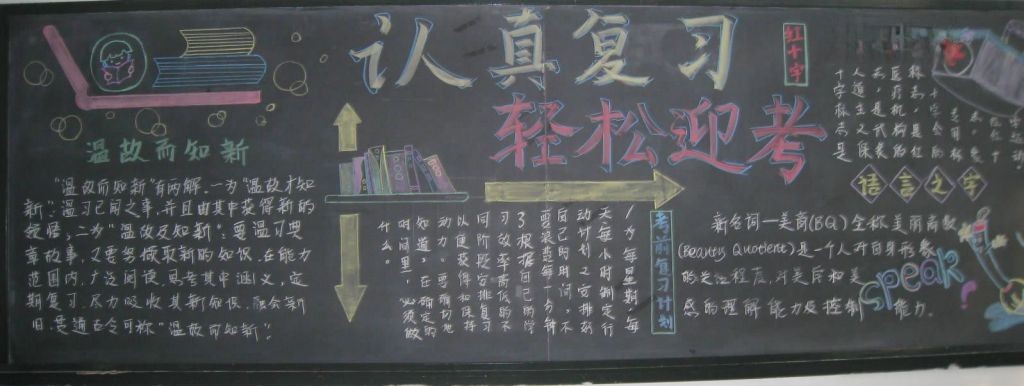 认真复习
轻松迎考
温故而知新
"温故而知新"有两解,一为"温故才知
新":温习已闻之事,并且由其中获得新的
领悟;二为"温故及知新":要温习典
章故事,又要努撷取新的知识,在能力
范围内,广泛阅读,思考其中涵义,定
期复习,尽力吸收其新知识,融会新
旧,贯通古今可称"温故而知新":
考前复习计划
1为每星期、每
天、每小时制定行
动计划,合理安排好
自己的时间,不
要装超每一分钟
3根据自己的学
习效率高低的不
同阶段安排复习
以便获得和保持
动力。要确切地
知道,在确定的
时间里,必须做
什么。
红十字
十字标志是
人道主义保
语言之字
新名词—美商(BQ)全称美丽商数
(Beauty Quotient)是一个人对自身形象
的关注程度,对美后和美
感的理解能力及控制 能力.
speak